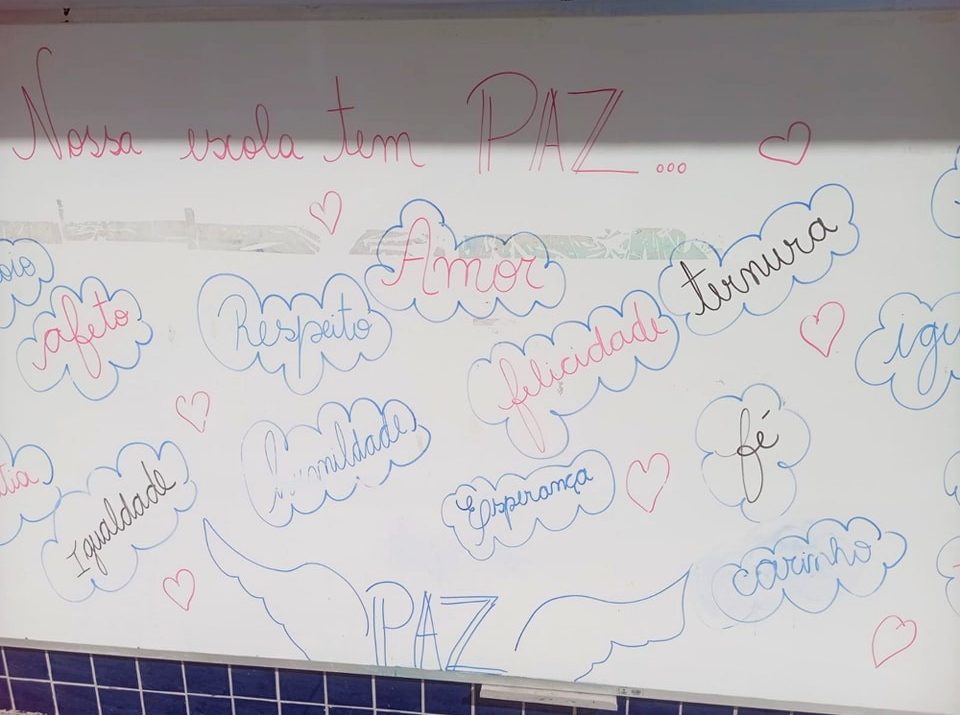 Nossa escola tem PAZ...
Amor
ternura
oio
afeto
Respeito
felicidade
igu
Humildade
fé
tia
Igualdade
Esperança
carinho
PAZ